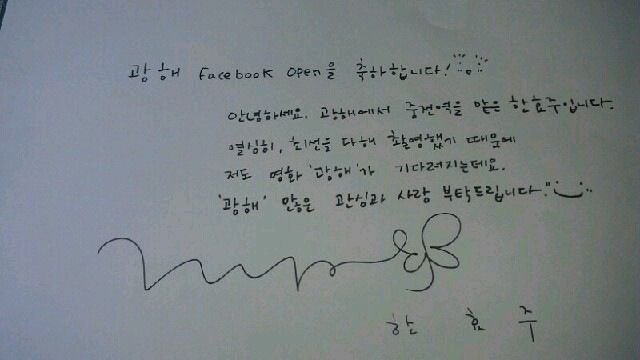 광해 Facebook open을 축하합니다!
안녕하세요. 광해에서 중전역을 맡은 한효주입니다.
열심히, 최선을 다해 촬영했기 때문에
저도 영화 '광해'가 기다려지는데요.
'광해' 많은 관심과 사랑 부탁드립니다!
한효주